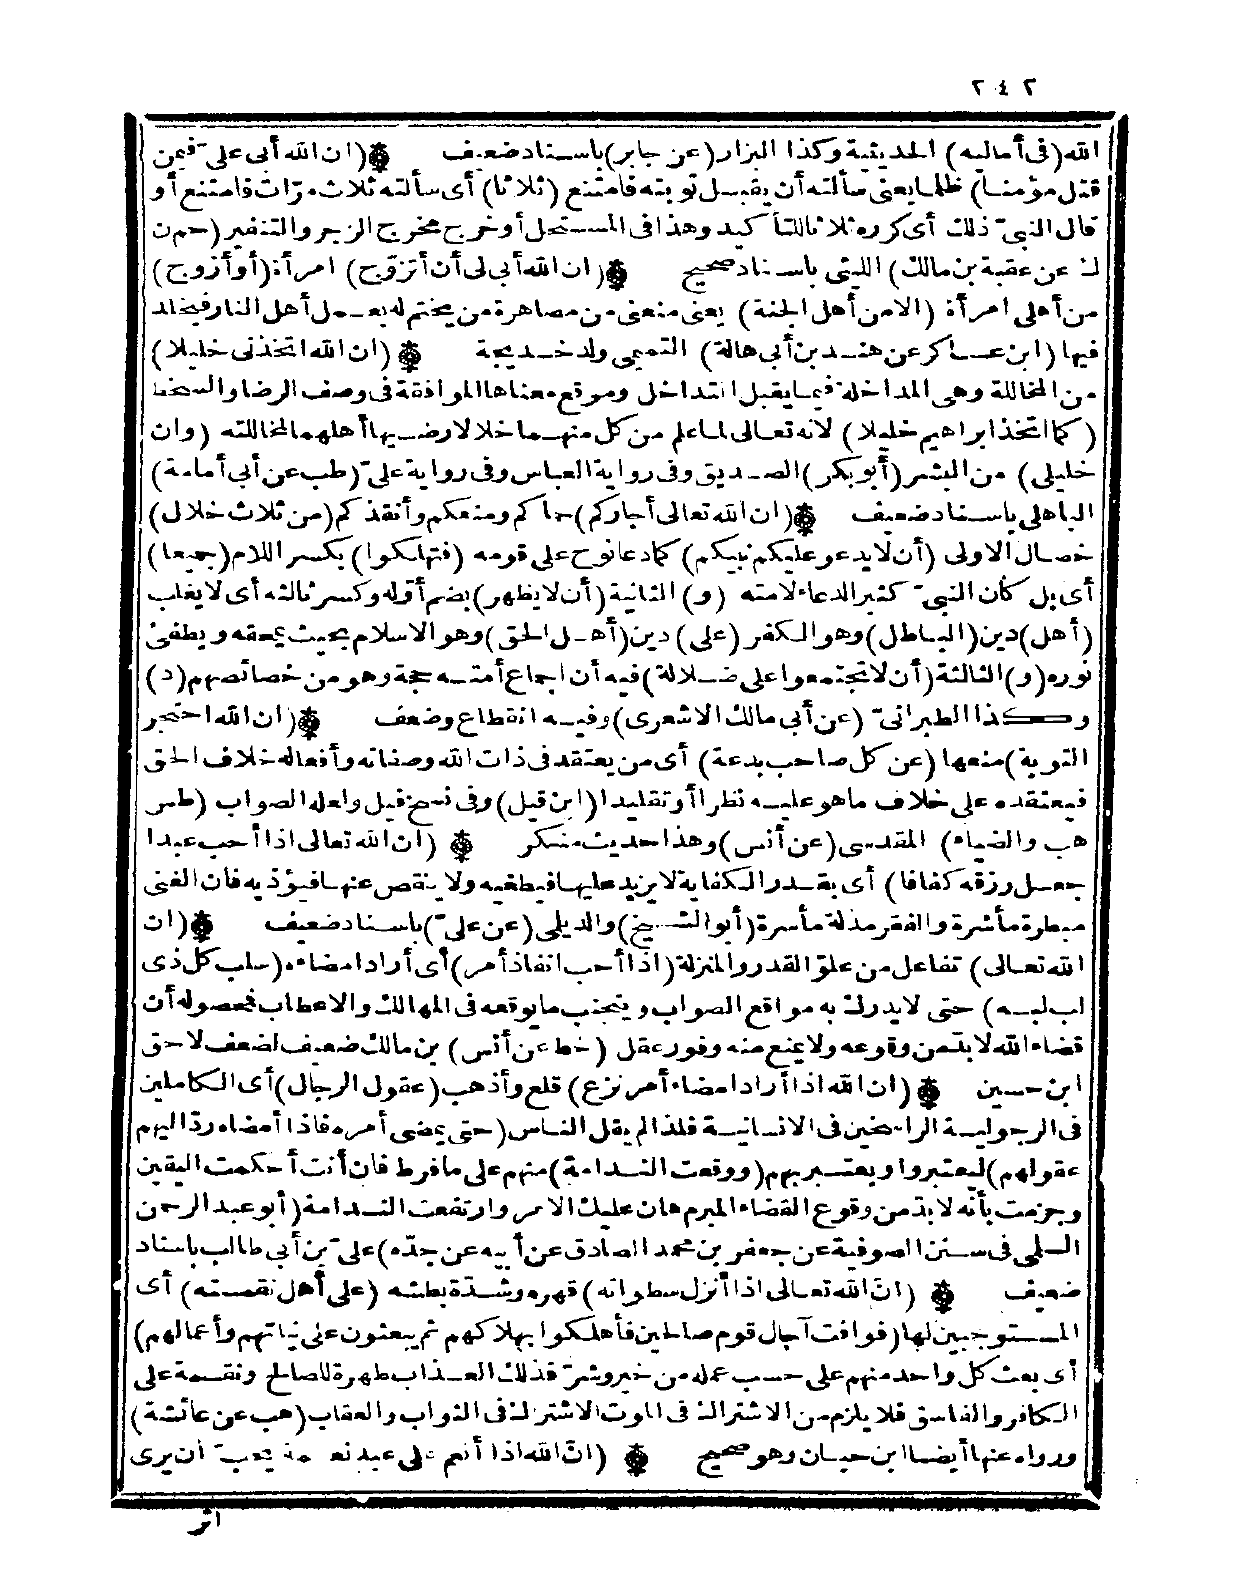 ٢٤٢
الله (فى أماليه) الحديثية وكذا البزار (عن جابر) باسناد ضعيف (ان الله أبى علىّ فيمن
قتل مؤمنا) ظلما يعنى سألته أن يقبل توبته فامتنع (ثلاثا) أى سألته ثلاث مرّات فامتنع أو
قال النبىّ ذلك أى كرره ثلاثا للتأكيد وهذا فى المستحل أو خرج مخرج الزجر والتنفير (حم ن
ك عن عقبة بن مالك) الليثى باسناد صحيح (ان الله أبى لى أن أتزوّج) امرأة (أو أزوج)
من أهلى امرأة (الا من أهل الجنة) يعنى منعنى من مصاهرة من يختم له بعمل أهل النار فيخلد
فيها (ابن عساكر عن هند بن أبى هالة) التميمى ولد خديجة (ان الله اتخذنى خليلا)
من المخاللة وهى المداخلة فيما يقبل التداخل وموقع معناها الموافقة فى وصف الرضا والسخط
(كما اتخذ ابراهيم خليلا) لانه تعالى لما علم من كل منهما خلالا رضيها أهلهما لمخاللته (وان
خليلى) من البشر (أبو بكر) الصديق وفى رواية العباس وفى رواية علىّ (طب عن أبى أمامة)
الباهلى باسناد ضعيف (ان الله تعالى أجاركم) حماكم ومنعكم وأنقذكم (من ثلاث خلال)
خصال الاولى (أن لا يدعو عليكم نبيكم) كما دعا نوح على قومه (فتهلكوا) بكسر اللام (جميعا)
أى بل كان النبىّ كثير الدعاء لامته (و) الثانية (أن لا يظهر) بضم أوّله وكسر ثالثه أى لا يغلب
(أهل) دين (الباطل) وهو الكفر (على) دين (أهل الحق) وهو الاسلام بحيث يمحقه ويطفئ
نوره (و) الثالثة (أن لا تجتمعوا على ضلالة) فيه أن اجماع أمته حجة وهو من خصائصهم (د)
وكذا الطبرانىّ (عن أبى مالك الاشعرى) وفيه انقطاع وضعف (ان الله احتجر
التوبة) منعها (عن كل صاحب بدعة) أى من يعتقد فى ذات الله وصفاته وأفعاله خلاف الحق
فيعتقده على خلاف ما هو عليه نظرا أو تقليدا (ابن قيل) وفى نسخ فيل ولعله الصواب (طس
هب والضياء) المقدسى (عن أنس) وهذا حديث منكر (ان الله تعالى اذا أحب عبدا
جعل رزقه كفافا) أى بقدر الكفاية لا يزيد عليها فيطغيه ولا ينقص عنها فيؤذيه فان الغنى
مبطرة مأشرة والفقر مذلة مأسرة (أبو الشيخ) والديلى (عن علىّ) باسناد ضعيف (ان
الله تعالى) تفاعل من علوّ القدر والمنزلة (اذا أحب انفاذ أمر) أى أراد امضاءه (سلب كل ذى
لب لبه) حتى لا يدرك به مواقع الصواب ويتجنب ما يوقعه فى المهالك والاعطاب فحصوله أن
قضاء الله لا بدّ من وقوعه ولا يمنع منه وفور عقل (خط عن أنس) بن مالك ضعيف لضعف لاحق
ابن حسين (ان الله اذا أراد امضاء أمر نزع) قلع وأذهب (عقول الرجال) أى الكاملين
فى الرجولية الراسخين فى الانسانية فلذا لم يقل الناس (حتى يمضى أمره فاذا أمضاه ردّ اليهم
عقولهم) ليعتبروا ويعتبر بهم (ووقعت الندامة) منهم على ما فرط فان أنت أحكمت اليقين
وجزمت بأنه لا بدّ من وقوع القضاء المبرم هان عليك الامر وارتفعت الندامة (أبو عبد الرحمن
السلمى فى سنن الصوفية عن جعفر بن محمد الصادق عن أبيه عن جدّه) علىّ بن أبى طالب باسناد
ضعيف (انّ الله تعالى اذا أنزل سطواته) قهره وشدّة بطشه (على أهل نقمته) أى
المستوجبين لها (فوافت آجال قوم صالحين فأهلكوا بهلاكهم ثم يبعثون على نياتهم وأعمالهم)
أى بعث كل واحد منهم على حسب عمله من خير وشرّ فذلك العذاب طهرة للصالح ونقمة على
الكافر والفاسق فلا يلزم من الاشتراك فى الموت الاشتراك فى الثواب والعقاب (هب عن عائشة)
ورواه عنها أيضا ابن حبان وهو صحيح (انّ الله اذا أنعم على عبد نعمة يحبّ أن يرى
أثر